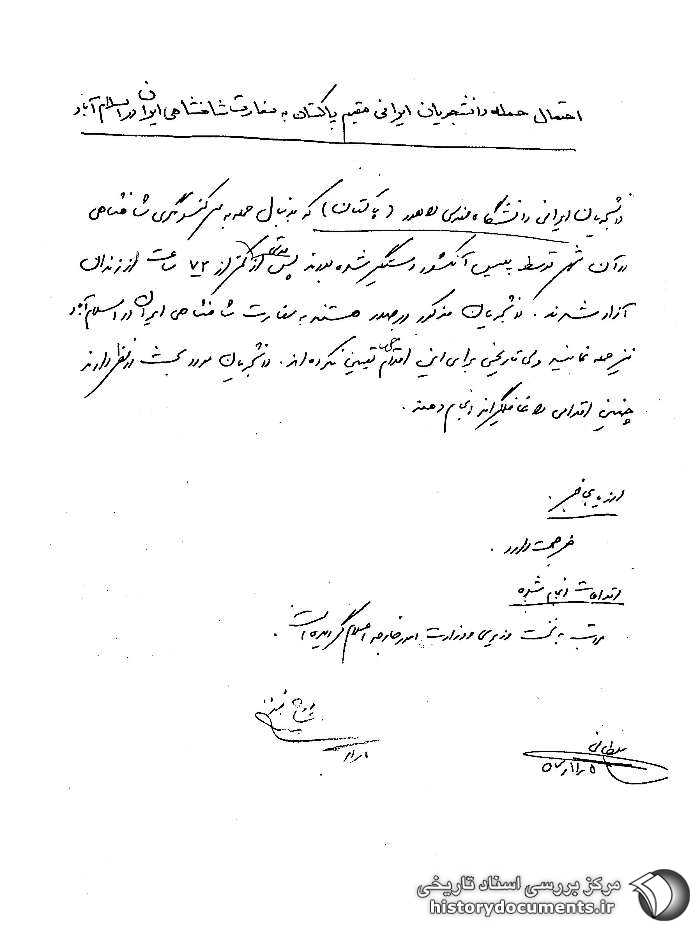 احتمال حمله دانشجویان ایرانی مقیم پاکستان به سفارت شاهنشاهی ایران در اسلام آباد
دانشجویان ایرانی دانشگاه مهندسی لاهور (پاکستان) که بدنبال حمله به سرکنسولگری شاهنشاهی
در آن شهر توسط پلیس آنکشور دستگیر شده بودند پس از مدتی کمتر از ۷۲ ساعت از زندان
آزاد شدند. دانشجویان مذکور درصدد هستند به سفارت شاهنشاهی ایران در اسلام آباد
نیز حمله نمایند ولی تاریخی برای این اقدام تعیین نکرده‌اند. دانشجویان مورد بحث در نظر دارند
چنین اقدامی را غافلگیرانه انجام دهند.
ارزیابی خبر.
خبر صحت دارد.
اقدامات انجام شده
مراتب به نخست وزیری و وزارت امور خارجه اعلام گردیده است.
سلطانی
مرکز بررسی اسناد تاریخی
historydocuments.ir